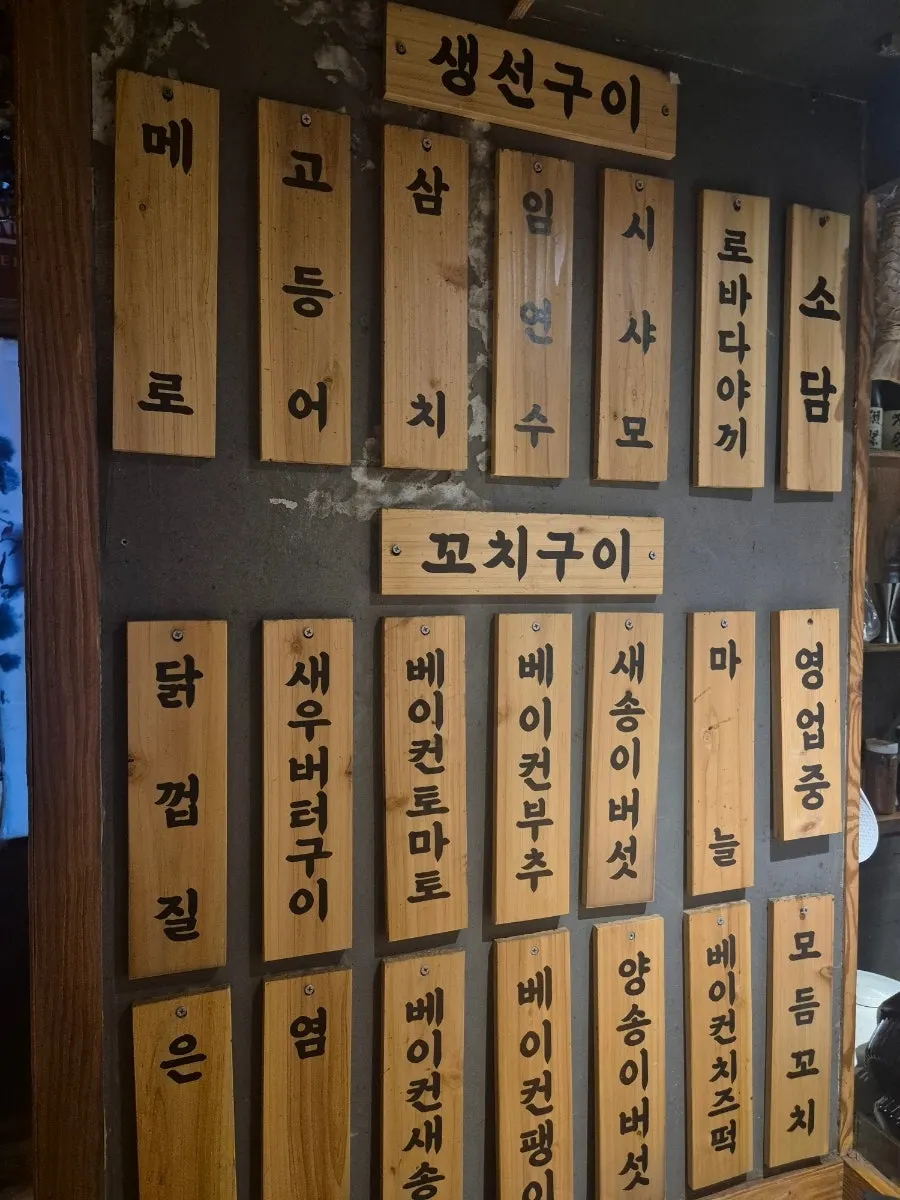 생선구이
메로
고등어
삼치
임연수
시샤모
로바다야끼
소담
꼬치구이
닭껍질
새우버터구이
베이컨토마토
베이컨부추
새송이버섯
마늘
영업중
은
염
베이컨새송
베이컨팽이
양송이버섯
베이컨치즈떡
모듬꼬치